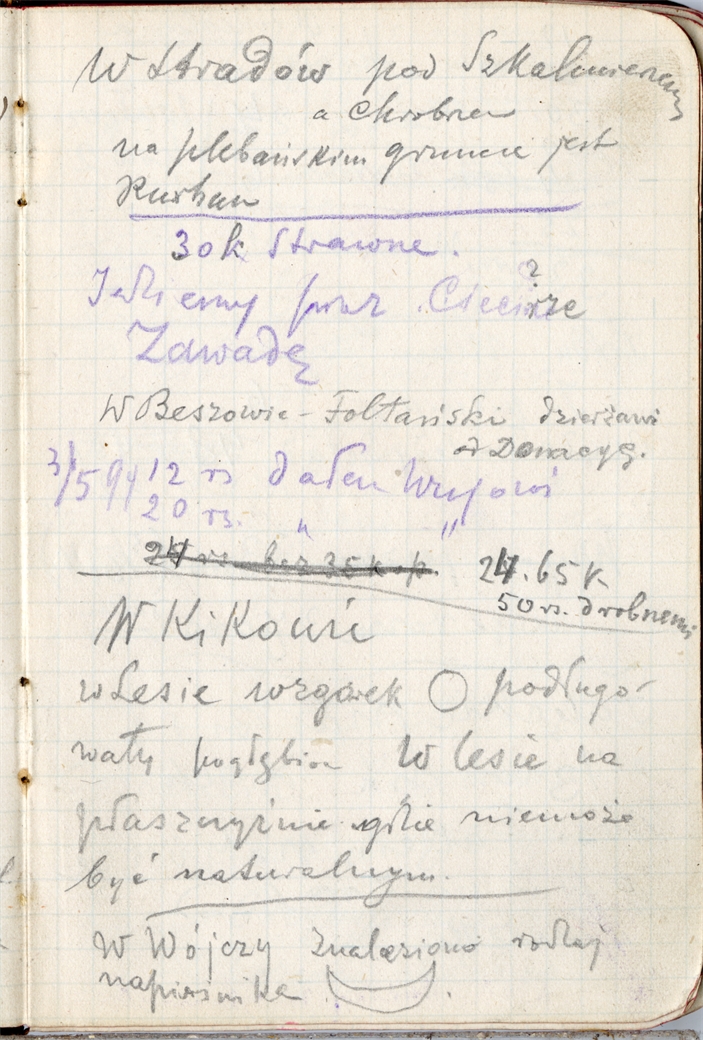 W Stradów pod Szkalmierzem
a Chrobrzem
na plebańskim gruncie jest
Kurhan
30k Strawne.
Jedziemy przez Cieci rze
?
Zawadę
W Beszowie - Fołtański dzierżawi
z Donacyą.
3/5 94 12 rs dałem Wujowi
20 rs. " "
24 rs. bez 35 kop. 24.65 k
50 rs. drobnemi
W Kikowie
w Lesie wzgórek podługo-
waty pogłębion W lesie na
płaszczyźnie gdzie niemoże
być naturalnym.
W Wójczy znaleziono rodzaj
napierśnika